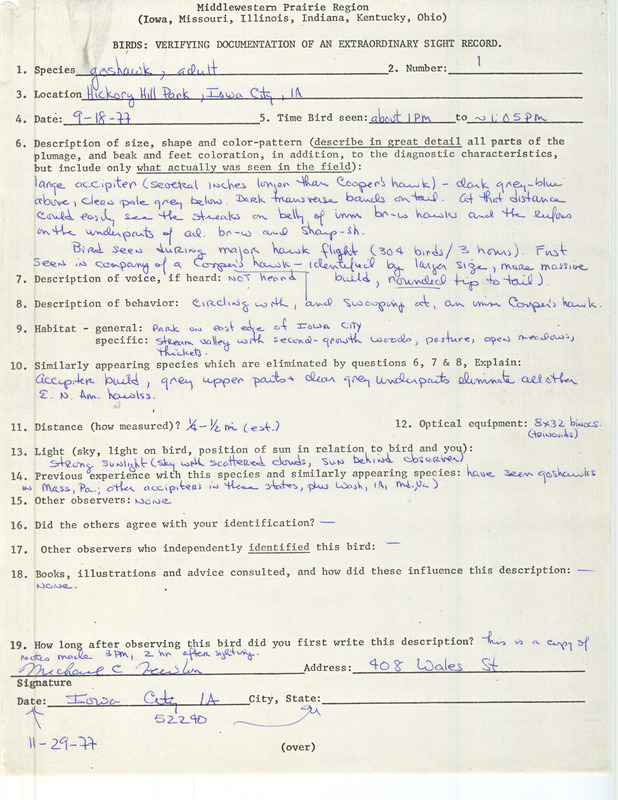 Middlewestern Prairie Region
(Iowa, Missouri, Illinois, Indiana, Kentucky, Ohio)
BIRDS: VERIFYING DOCUMENTATION OF AN EXTRAORDINARY SIGHT RECORD.
1. Species goshawk, adult 2. Number: 1
3. Location Hickory Hill Park, Iowa City, IA
4. Date: 9-18-77 5. Time Bird seen: about 1PM to ~1:05PM
6. Description of size, shape and color-pattern (describe in great detail all parts of the
plumage, and beak and feet coloration, in addition, to the diagnostic characteristics,
but include only what actually was seen in the field):
large accipiter (several inches longer than Cooper's hawk) - dark grey-blue
above, clean pale grey below. Dark transverse bands on tail. At that distance
could easily see the streaks on belly of imm br-w hawks and the rufous
on the underparts of ad. br-w and sharp-sh.
Bird seen during major hawk flight (304 birds/3 hours). First
seen in company of a Cooper's hawk - identified by larger size, more massive
7. Description of voice, if heard: NOT heard build, rounded tip to tail).
8. Description of behavior: Circling with, and swooping at, an imm Cooper's hawk.
9. Habitat - general: Park on east edge of Iowa City
specific: Stream valley with second-growth woods, pasture, open meadows,
thickets.
10. Similarly appearing species which are eliminated by questions 6, 7 & 8, Explain:
Accipiter build, grey upper parts + clear grey underparts eliminate all other
E. N. Am. hawks.
11. Distance (how measured)? 1/4 - 1/2 mi (est.) 12. Optical equipment: 8x32 binocs.
(trinovids)
13. Light (sky, light on bird, position of sun in relation to bird and you):
Strong sunlight (sky with scattered clouds, sun behind observer)
14. Previous experience with this species and similarly appearing species: have seen goshawks
in Mass, Pa; other accipiters in these states, plus Wash, IA, Md, Va)
15. Other observers: NONE
16. Did the others agree with your identification? —
17. Other observers who independently identified this bird: —
18. Books, illustrations and advice consulted, and how did these influence this description: —
NONE.
19. How long after observing this bird did you first write this description? This is a copy of
notes made 3PM, 2 hr after sighting.
Michael C Newlon Address: 408 Wales St
Signature
Date: Iowa City IA City, State:
52240
11-29-77
(over)